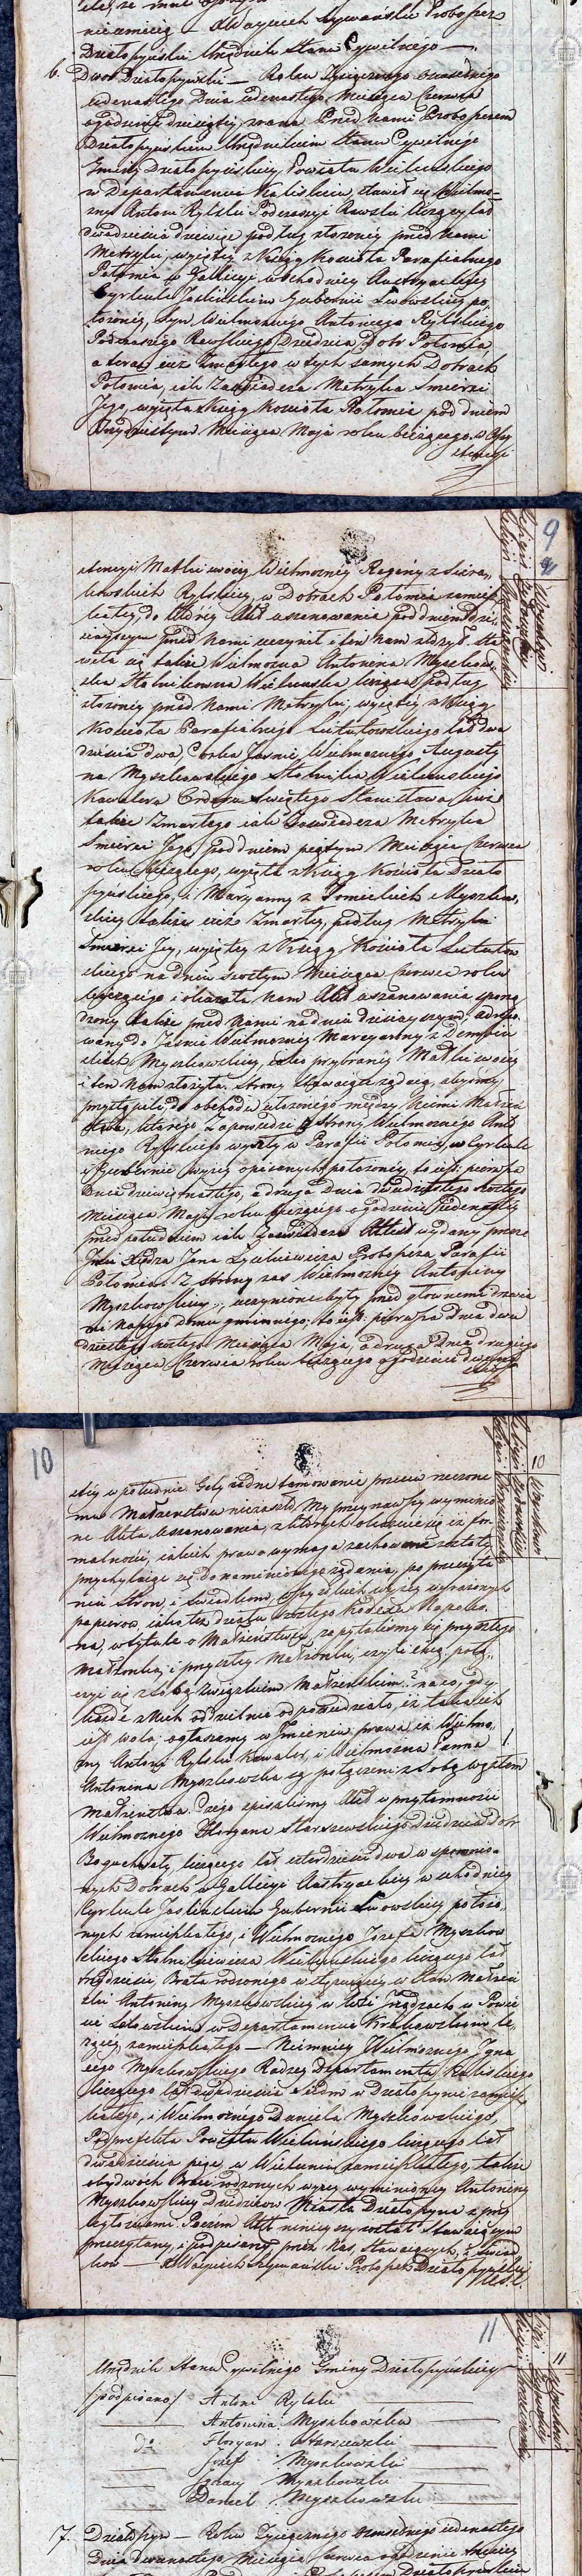 nieumieją — X Woyciech Szymański Proboszcz
Działoszyński Urzędnik Stanu Cywilnégo —
6. Dwór Działoszyński — Roku Tysiącznego osiemsetnégo
iedenastego Dnia iedenastego Miesiąca Czerwca
o godzinie dziesiątej zrana Przed Nami Proboszczem
Działoszyńskim Urzędnikiem Stanu Cywilnégo
Gminy Działoszyńskiey, Powiatu Wieluńskiego
w Departamencie Kaliskim, stawił się Wielmo=
żny Antoni Rylski Podczaszyc Rawski liczący lat
dwadzieścia dziewięć podług złożoney przed Nami
Metryki, wyiętéy z Xiąg Kościoła Parafialnego
Połomia w Gallicyi wschodniey Austryackiey
Cyrkule Jasielskim Gubernii Lwowskiey po,
łożonéy, Syn Wielmożnego Antoniego Rylskiego
Podczaszego Rawskiego, Dziedzica Dóbr Połomia,
a teraz iuż Zmarłego w tych samych Dobrach
Połomia, iak Zaświadcza Metryka Śmierci
Jego, wyięta z Xiąg Kościoła Połomia pod dniem
Trzydziestym Miesiąca Maja roku bieżącego. w Assy
stencyi
9
stencyi Matki swoiey Wielmożney Reginy z Siera,
kowskich Rylskiey, w Dobrach Połomia zamiesz
kałey, do któréy Akt uszanowania pod dniem dzi,
sieyszym przed Nami uczynił i ten Nam złożył. Sta
wiła się także Wielmożna Antonina Myszkow,
ska Stolnikowna Wieluńska licząca podług
złożoney przed Nami Metryki, wyiętéy z Xiąg
Kościoła Parafialnégo Lututowskiego lat dwa
dzieścia dwa, Córka Jaśnie Wielmożnego Augusty
na Myszkowskiego Stolnika Wieluńskiego
Kawalera Orderu Świętego Stanisława iuż
także Zmarłego iak Zaświadcza Metryka
Śmierci Jego, pod dniem piątym Miesiąca Czerwca
roku bieżącego, wyięta z Xiąg Kościoła Działo
szyńskiego, i Maryanny z Tomickich Myszkow,
skiey także iuż Zmarłey, podług Metryki
Śmierci Jey, wyiętey z Xiąg Kościoła Lututow
skiego na dniu szóstym Miesiąca Czerwca roku
bieżącego i okazała Nam Akt uszanowania sporzą
dzony także przed Nami na dniu dzisieyszym, adreso
wany do Jaśnie Wielmożney Maryanny z Dembiń
skich Myszkowskiey, iako przybraney Matki swoiey
i ten Nam złożyła. Strony stawaiące żądaią, abyśmy
przystąpili do obchodu ułożonego między Niemi Małżeń
stwa, którego Zapowiedzi z strony Wielmożnego Anto
niego Rylskiego wyszły w Parafii Połomia, w Cyrkule
i Gubernii wyżey opisanych położoney, to iest: pierwsza
Dnia dziewiętnastego, a druga Dnia dwudziestego szóstego
Miesiąca Maja roku bieżącego o godzinie Jedenastey
przed południem iak Zaświadcza Attest wydany przez
Jmci Xiędza Jana Proboszcza Parafii
Połomia. Z strony zaś Wielmożney Antoniny
Myszkowskiey, uczynione były przed głównemi drzwia
mi naszego domu gminnego, to iest: pierwsza Dnia dwu
dziestego szóstego Miesiąca Maja, a druga Dnia drugiego
Miesiąca Czerwca roku bieżącego o godzinie dwuna
10
stéy w południe. Gdy żadne tamowanie przeciw rzeczone
mu Małżeństwu nie zaszło, My przeyrzawszy wymienio
ne Akta uszanowania, z których okazuie się iż for
malności, iakich prawo wymaga zachowane zostały
przychylaiąc się do namienionego żądania, po przeczyta
niu Stron, i Świadkom, wszystkich wyżey wyrażonych
papierów, iako też działu szóstego Kodexu Napoleo.
na, w tytule o Małżeństwie, zapytaliśmy się przyszłego
Małżonka, i przyszłey Małżonki, czyli chcą połą,
czyć się z sobą związkiem Małżeńskim? na co, gdy
każde z Nich oddzielnie odpowiedziało, iż taka ich
iest wola; ogłaszamy w Imieniu prawa, iż Wielmo,
żny Antoni Rylski Kawaler, i Wielmożna Panna
Antonina Myszkowska są połączeni z sobą węzłem
Małżeństwa. Czego spisaliśmy Akt w przytomności
Wielmożnego Floryana Starszewskiego Dziedzica Dóbr
Boguchwały, liczącego lat czterdzieści dwa w spomnio=
nych Dobrach w Gallicyi Austryackiey wschodniey
Cyrkule Jasielskim Gubernii Lwowskiey położo,
nych zamieszkałego, i Wielmożnego Józefa Myszkow
skiego Stolnikiewicza Wieluńskiego liczącego lat
trzydzieści, Brata rodzonego wstępuiącey w Stan Małżeń
ski Antoniny Myszkowskiey w Wsi Irządzach w Powie
cie Lelowskim w Departamencie Krakowskim le,
żącéy, zamieszkałego — Niemniey Wielmożnego Igna
cego Myszkowskiego Radzcy Departamentu Kaliskiego
liczącego lat dwadzieścia siedm w Działoszynie zamiesz
kałego, i Wielmożnégo Daniela Myszkowskiego,
Podprefekta Powiatu Wieluńskiego liczącego lat
dwadzieścia pięć, w Wieluniu zamieszkałego, także
obydwóch Braci rodzonych wyżey wymienioney Antoniny
Myszkowskiey Dziedziców Miasta Działoszyna z przy
ległościami. Poczem Akt ninieyszy został Stawaiącym
przeczytany, i podpisany przez Nas, Stawaiących, i Świad
ków — X Woyciech Szymański Proboszcz Działoszyński
11
Urzędnik Stanu Cywilnégo Gminy Działoszyńskiey
/podpisano/ Antoni Rylski
Antonina Myszkowska
do Floryan Starszewski
Jozef Myszkowski
Ignacy Myszkowski
Daniel Myszkowski
7. Działoszyn — Roku Tysiącznego osiemsetnego iedenastego
Dnia Dwunastego Miesiąca Czerwca o godzinie trzeciey